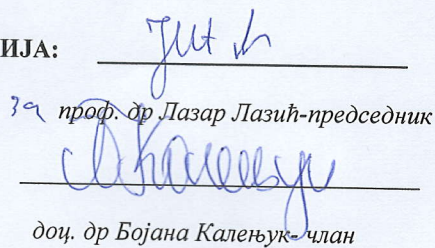 ИЈА:
за проф. др Лазар Лазић-председник
доц. др Бојана Калењук- члан